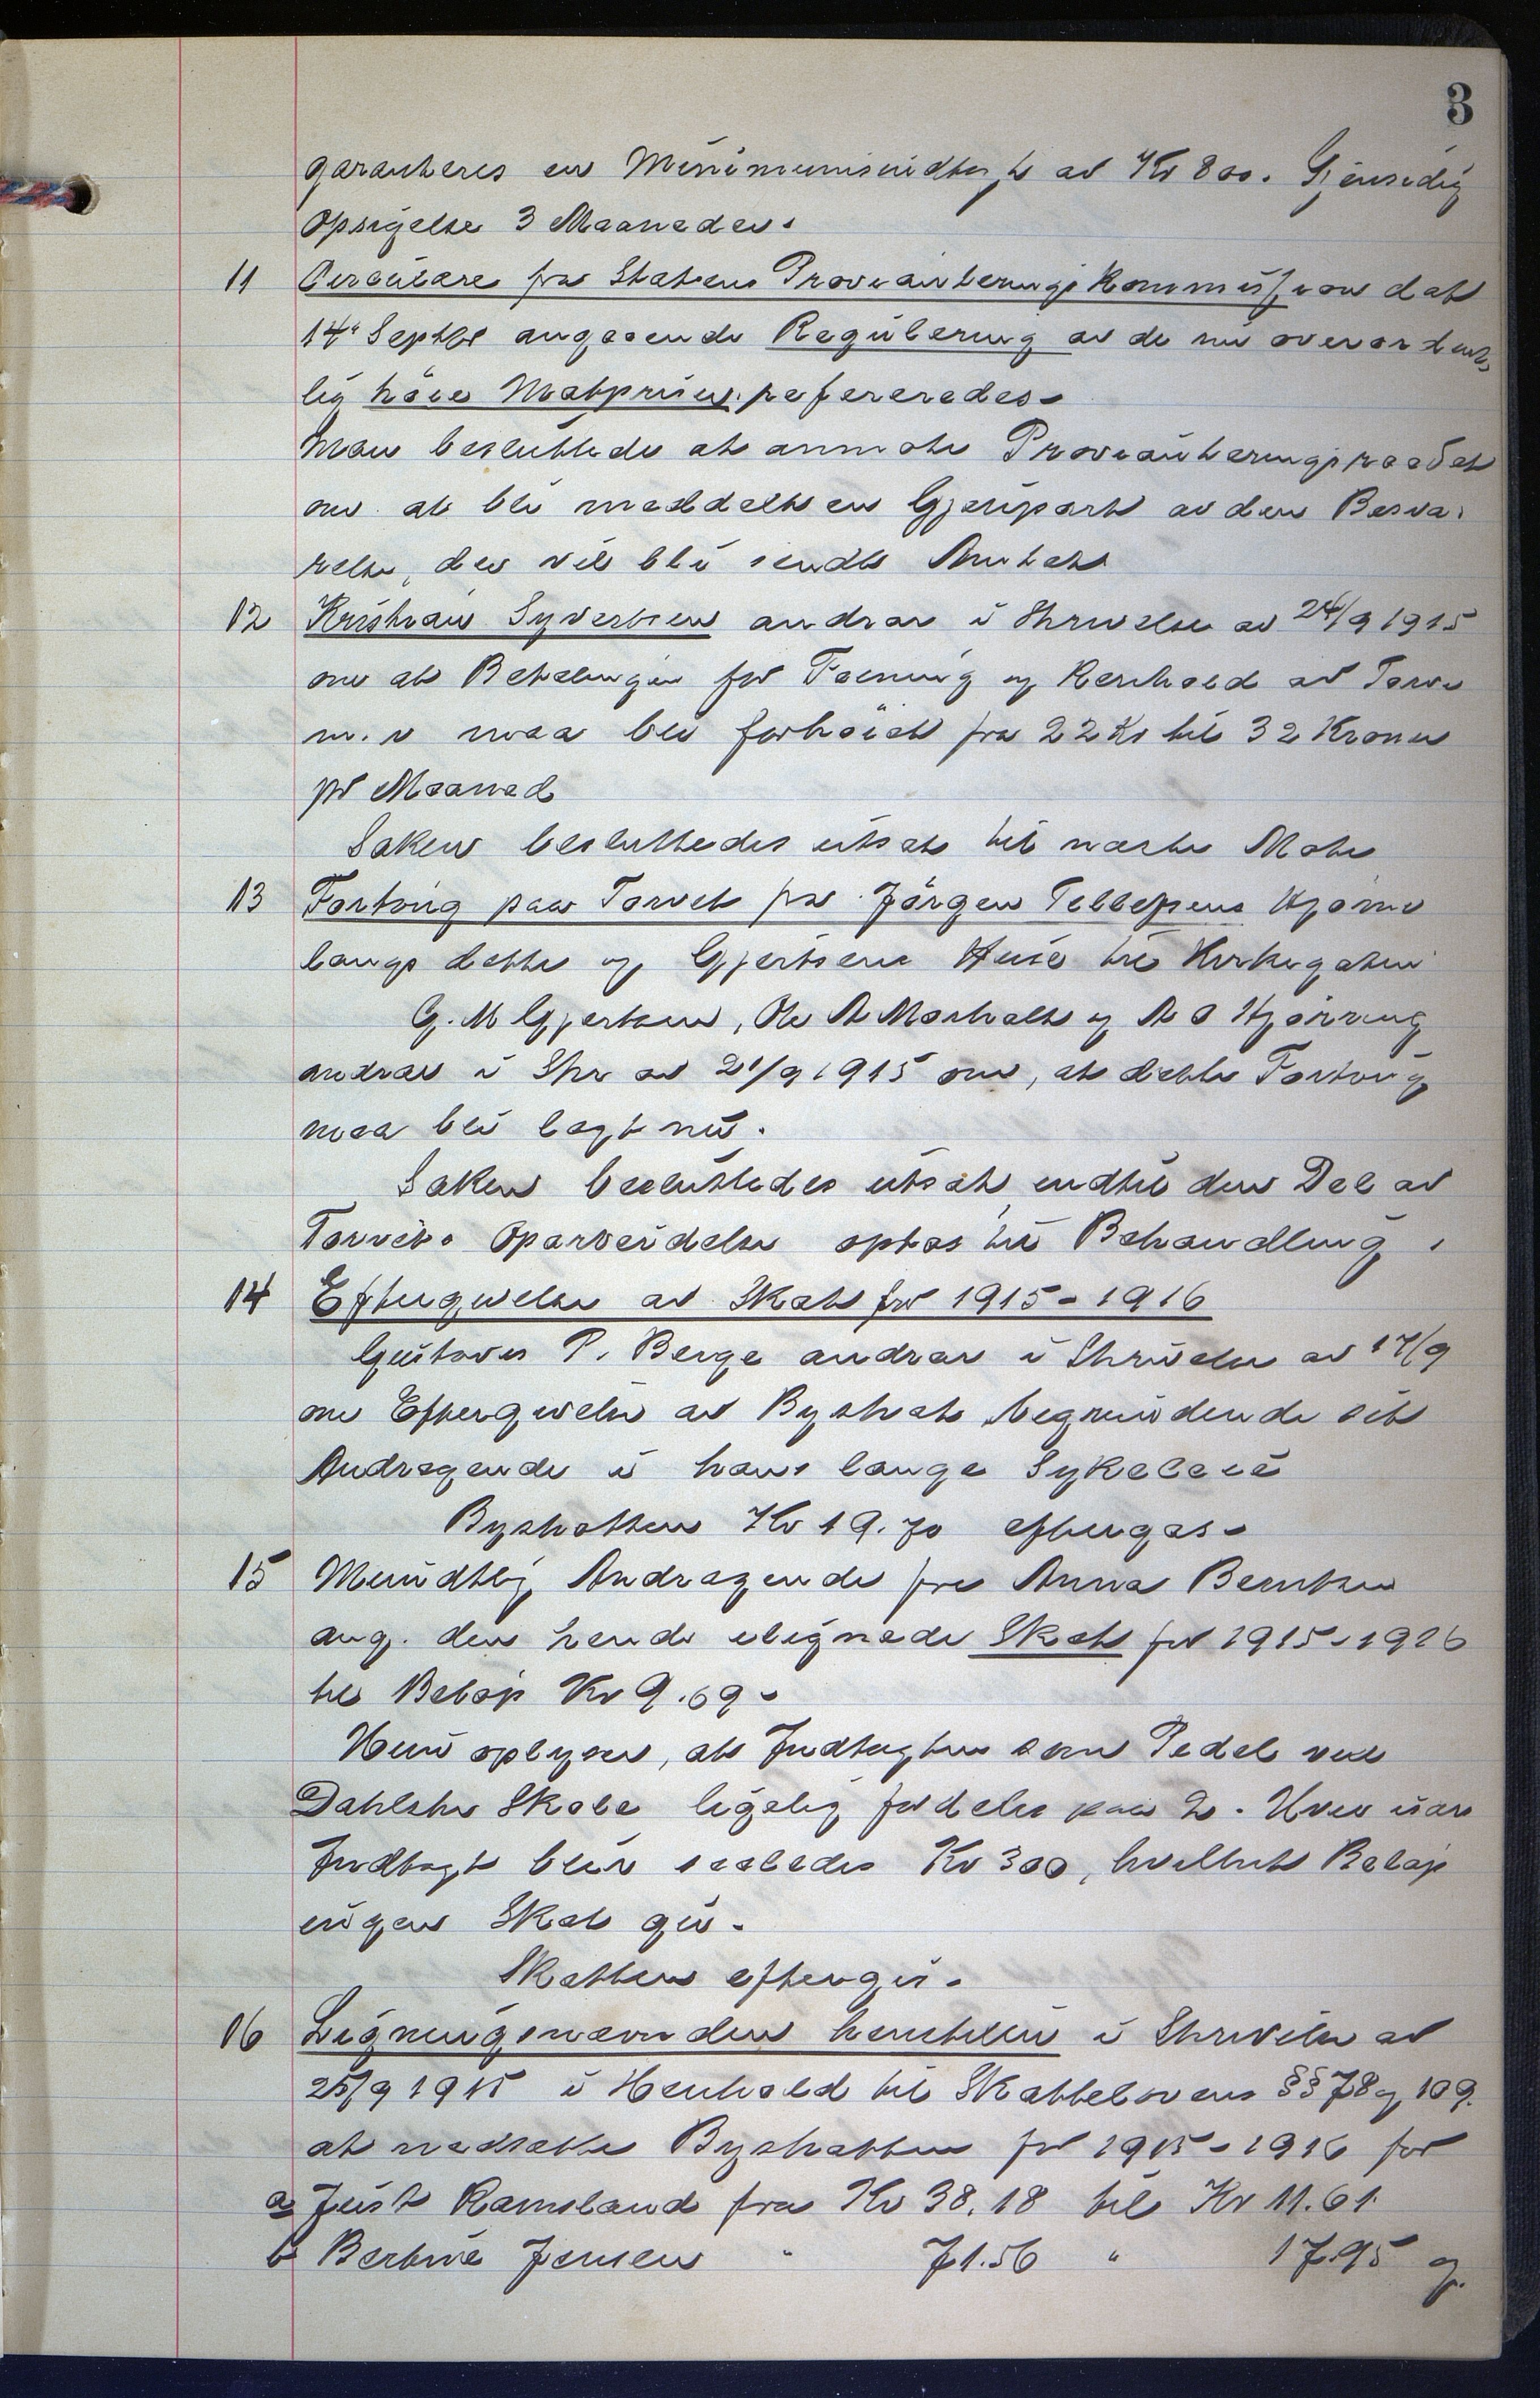 3
garanteres en Minimumsindtægt av Kr 800. Gjensidig
Opsigelse 3 Maaneder.
11 Circulære fra Statens Provianteringskommission dat
14de Septbr angaaende Regulering av de nu overordent
lig høie Matpriser refereredes.
Man besluttede at anmote Provianteringsraadet
om at bli meddelt en Gjenpart av den Besva-
relse, der vil bli sendt Amtet
12 Kristian Syvertsen andrar i Skrivelse av 24/9 1915
om at Betalingen for Feining og Renhold av Torve
m. v maa bli forhøiet fra 22 Kr til 32 Kroner
pr Maaned
Saken besluttedes utsat til næste Mote
13 Fortoug paa Torvet fra Jørgen Tellefsens Hjørne
langs dette og Gjertsens Hus til Kirkegaten
G. M Gjertsen, Ole A Morholt og A O Hjorring
andrar i Skr av 21/9 1915 om, at dette Fortoug
maa bli lagt nu.
Saken besluttedes utsat indtil den Del av
Torvets Oparbeidelse optas til Behandling.
14 Eftergivelse av Skat for 1915-1916
Gustava P. Berge andrar i Skrivelse av 17/9
om Eftergivelse av Byskat begrundende sit
Andragende i hans lange Sykeleie
Byskatten Kr 19.70 eftergaes.
15 Mundtlig Andragende fra Anna Berntsen
ang. den hende ilignede Skat for 1915-1916
til Beløp Kr 9.69.
Hun oplyser, at Indtægten som Pedel ved
Dahlske Skole ligelig fordeles paa 2. Hver især
Indtægt blir saaledes Kr 300, hvilket Beløp
ingen Skat gir.
Skatten eftergis.
16 Ligningsnævnden henstiller i Skrivelse av
25/9 1915 i Henhold til Skattelovens §§ 78 og 109.
at nedsætte Byskatten for 1915-1916 for
a Just Ramsland fra Kr 38.18 til Kr 11.61.
b Bertine Jensen " 71.56 " 17.95 og